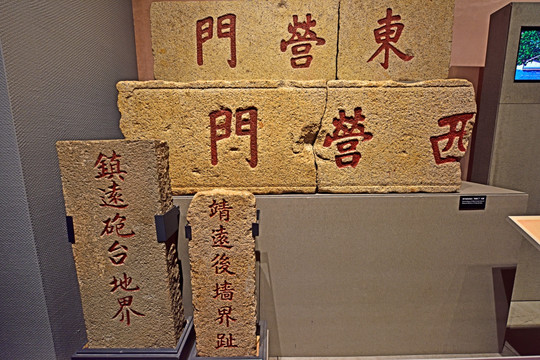 東營門
西營門
鎮遠砲台地界
靖遠後墙界趾